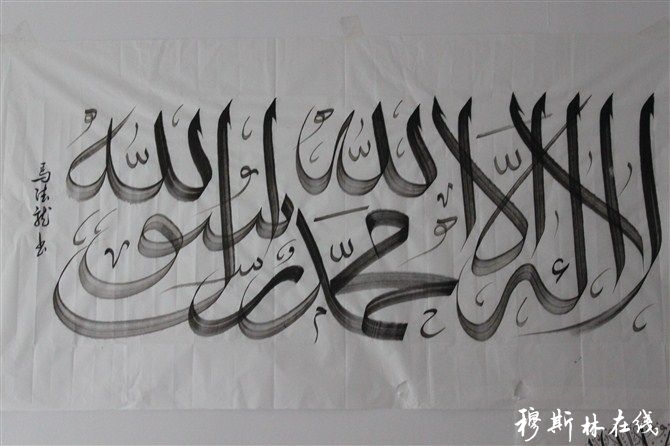 لا إله إلا الله محمد رسول الله
马法龙书
穆斯林在线